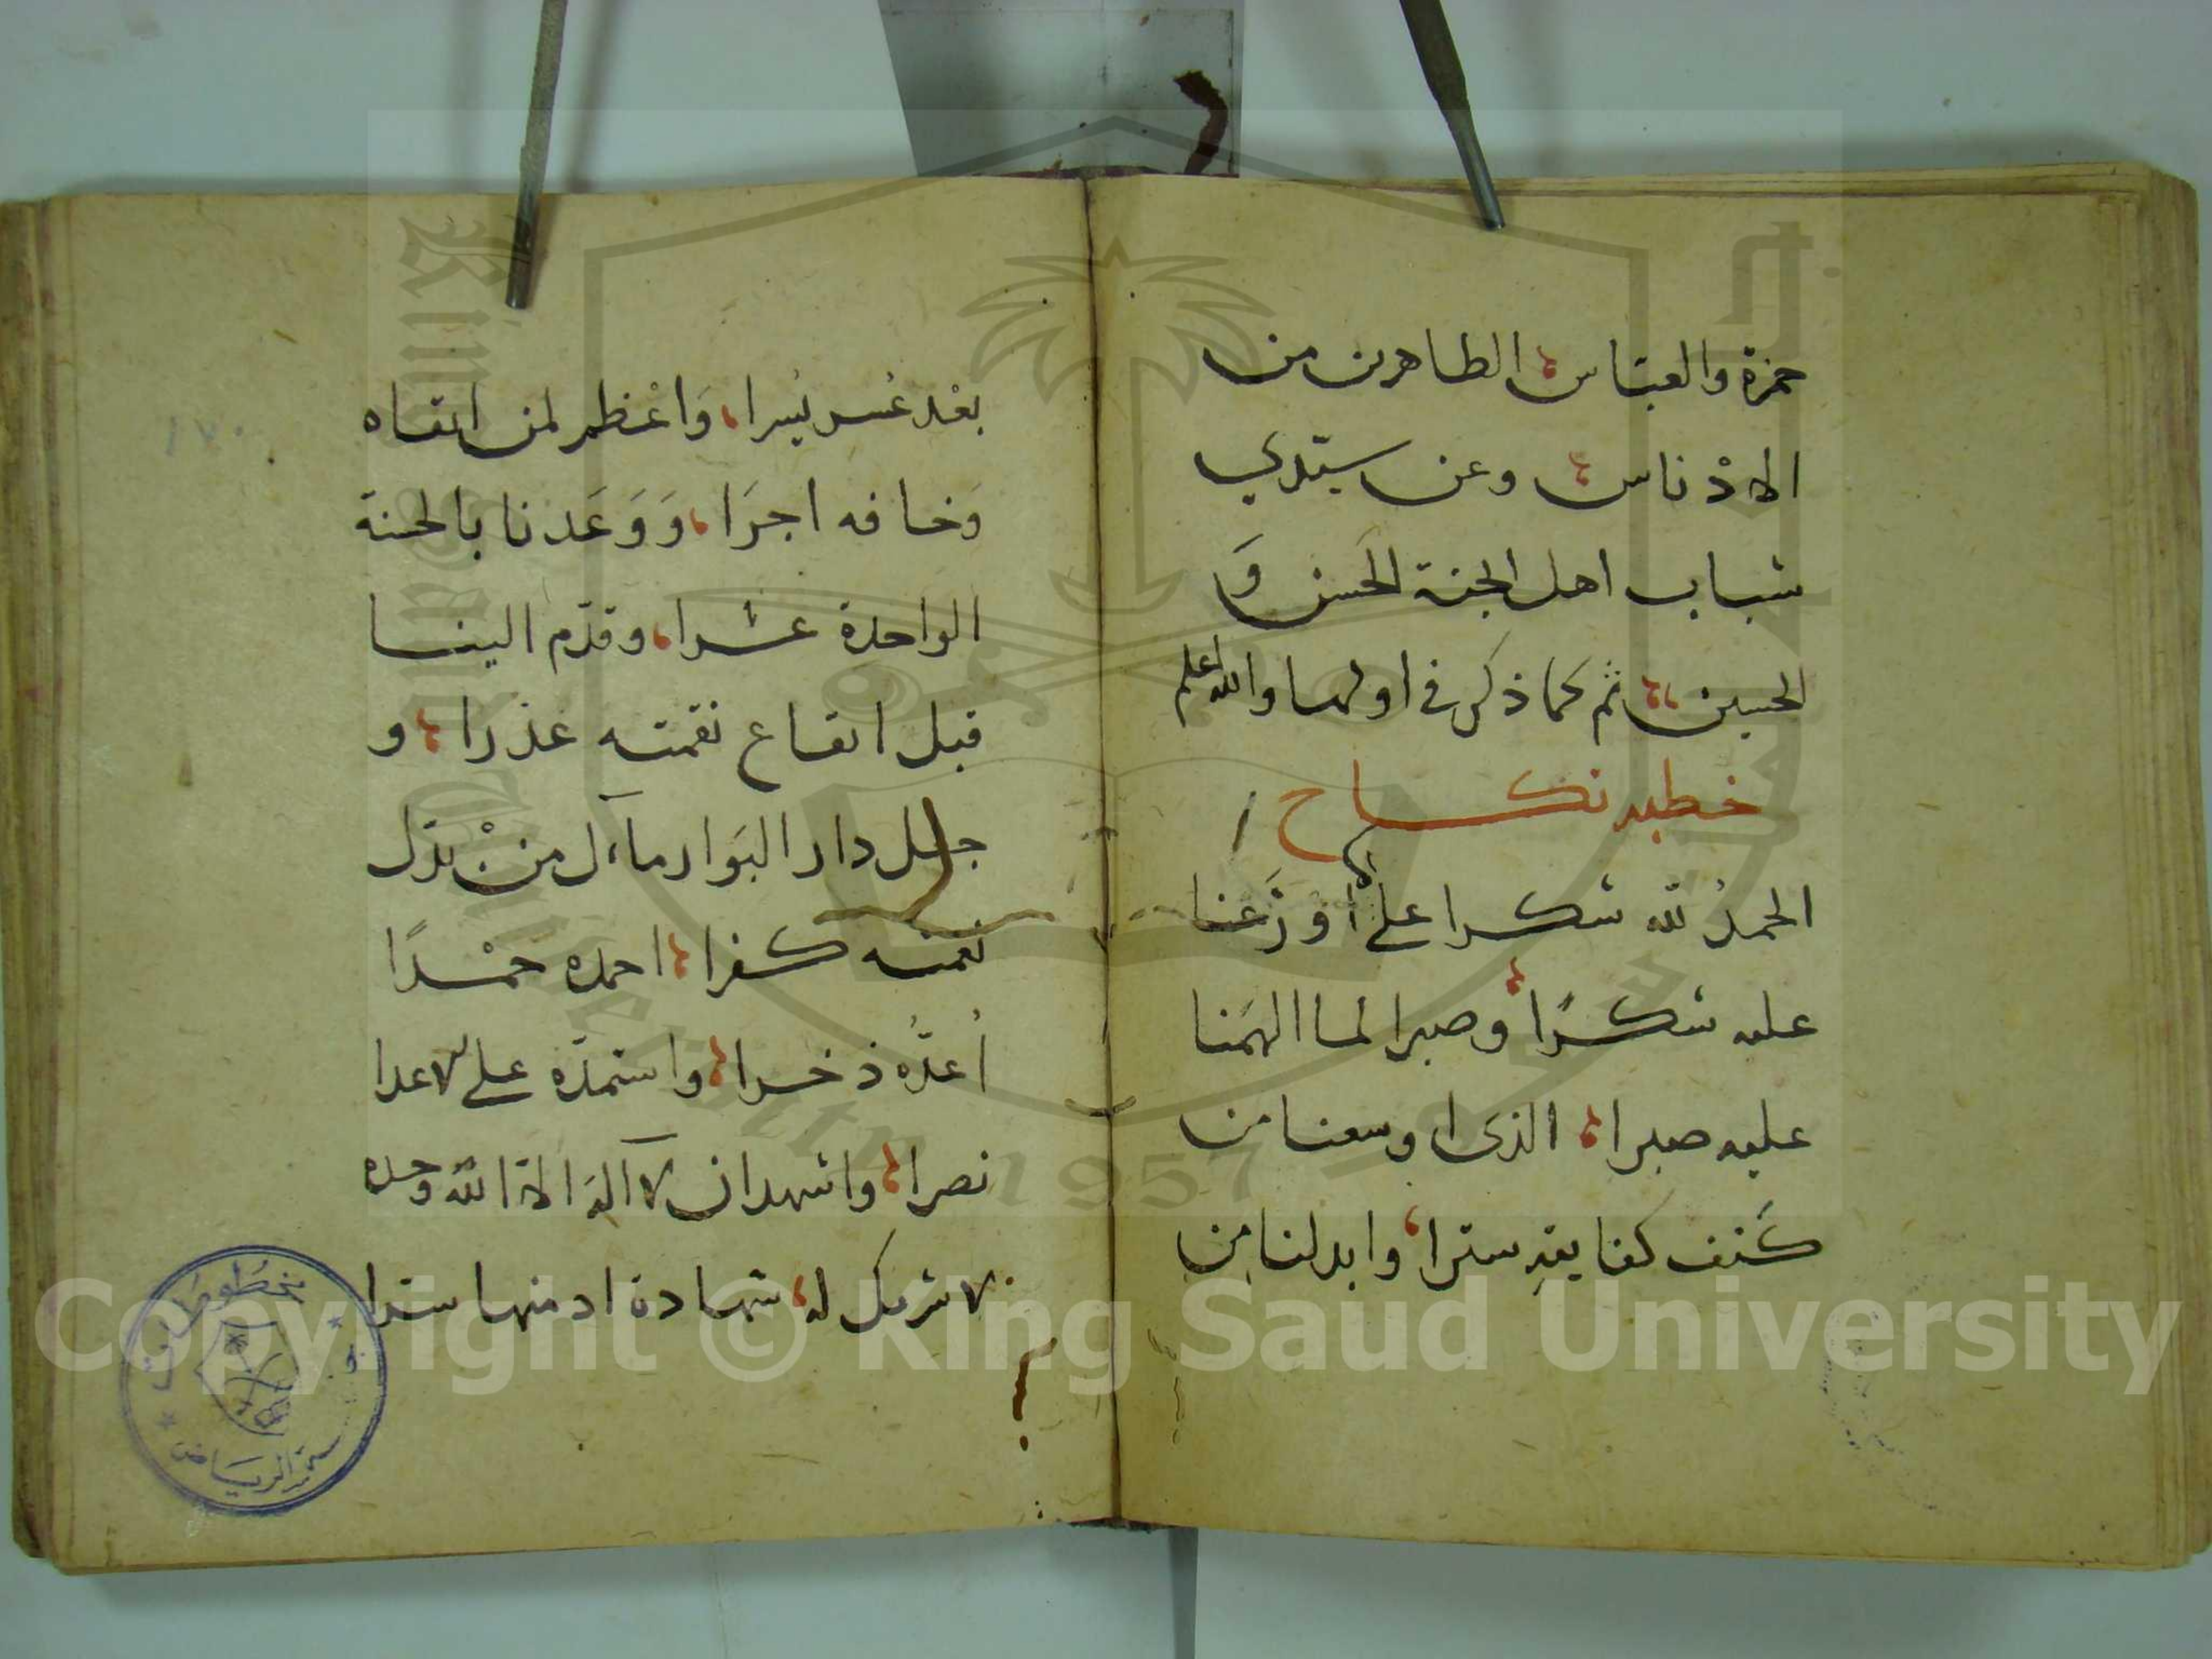 حمزة والعبّاس الطاهرين من
الادْناس وعن سيّدي
شباب اهل الجنة الحَسن وَ
الحسين ثم كما ذكر في اولها والله اعلم
خطبه نكاح
الحمدُ لله شكرا على ما أوْزَعنا
عليه شكرًا وصبرا لما الهَمنا
عليه صبرا الذى اوسعنا من
كَنف كفايتهِ سترا وابدلنا من
بعْد عُسر يُسرا وَاعْظم لمن اتقاه
وَخافه اجرَا وَوَعَدنا بالحسنة
الواحدة عشرا وقدّم الينا
قبل ايقاع نقمته عذرا و
جعل دار البَوار مآل من بدّل
نعمته كفرا احمده حمْدًا
اُعدُّه ذخرا واستمدّه على الاعدا
نصرا واشهد ان لا آله الا الله وحده
لا شريك له شهادة ادمنها سرا
١٧٠
مخطوطات
الرياض
Copyright © King Saud University
King Saud University
1957